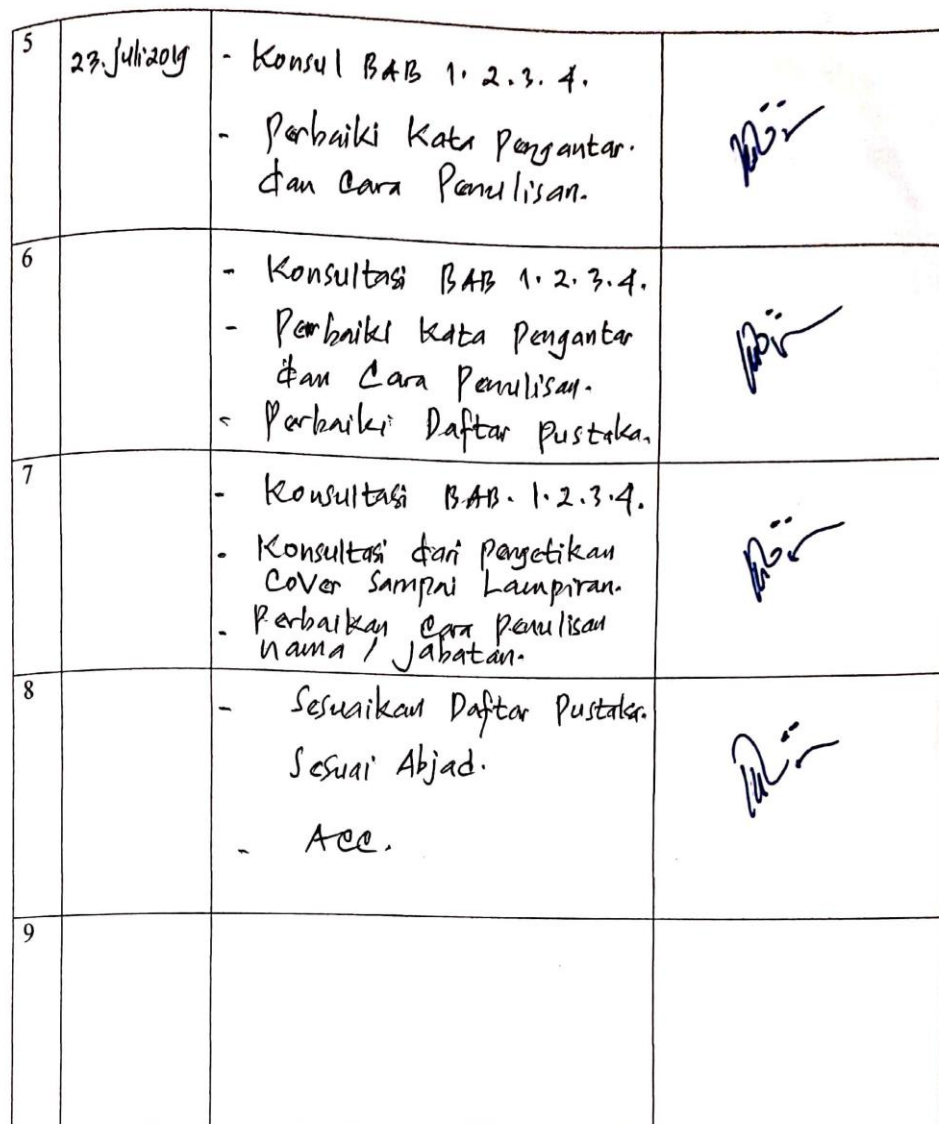 5
23. Juli 2019
- Konsul BAB 1. 2. 3. 4.
- Perbaiki Kata Pengantar.
dan Cara Penulisan.
6
- Konsultasi BAB 1. 2. 3. 4.
- Perbaiki Kata Pengantar
dan Cara Penulisan.
- Perbaiki Daftar Pustaka.
7
- Konsultasi BAB. 1. 2. 3. 4.
- Konsultasi dari Pengetikan
Cover Sampai Lampiran.
- Perbaikan Cara Penulisan
nama / Jabatan.
8
- Sesuaikan Daftar Pustaka.
Sesuai Abjad.
- Acc.
9